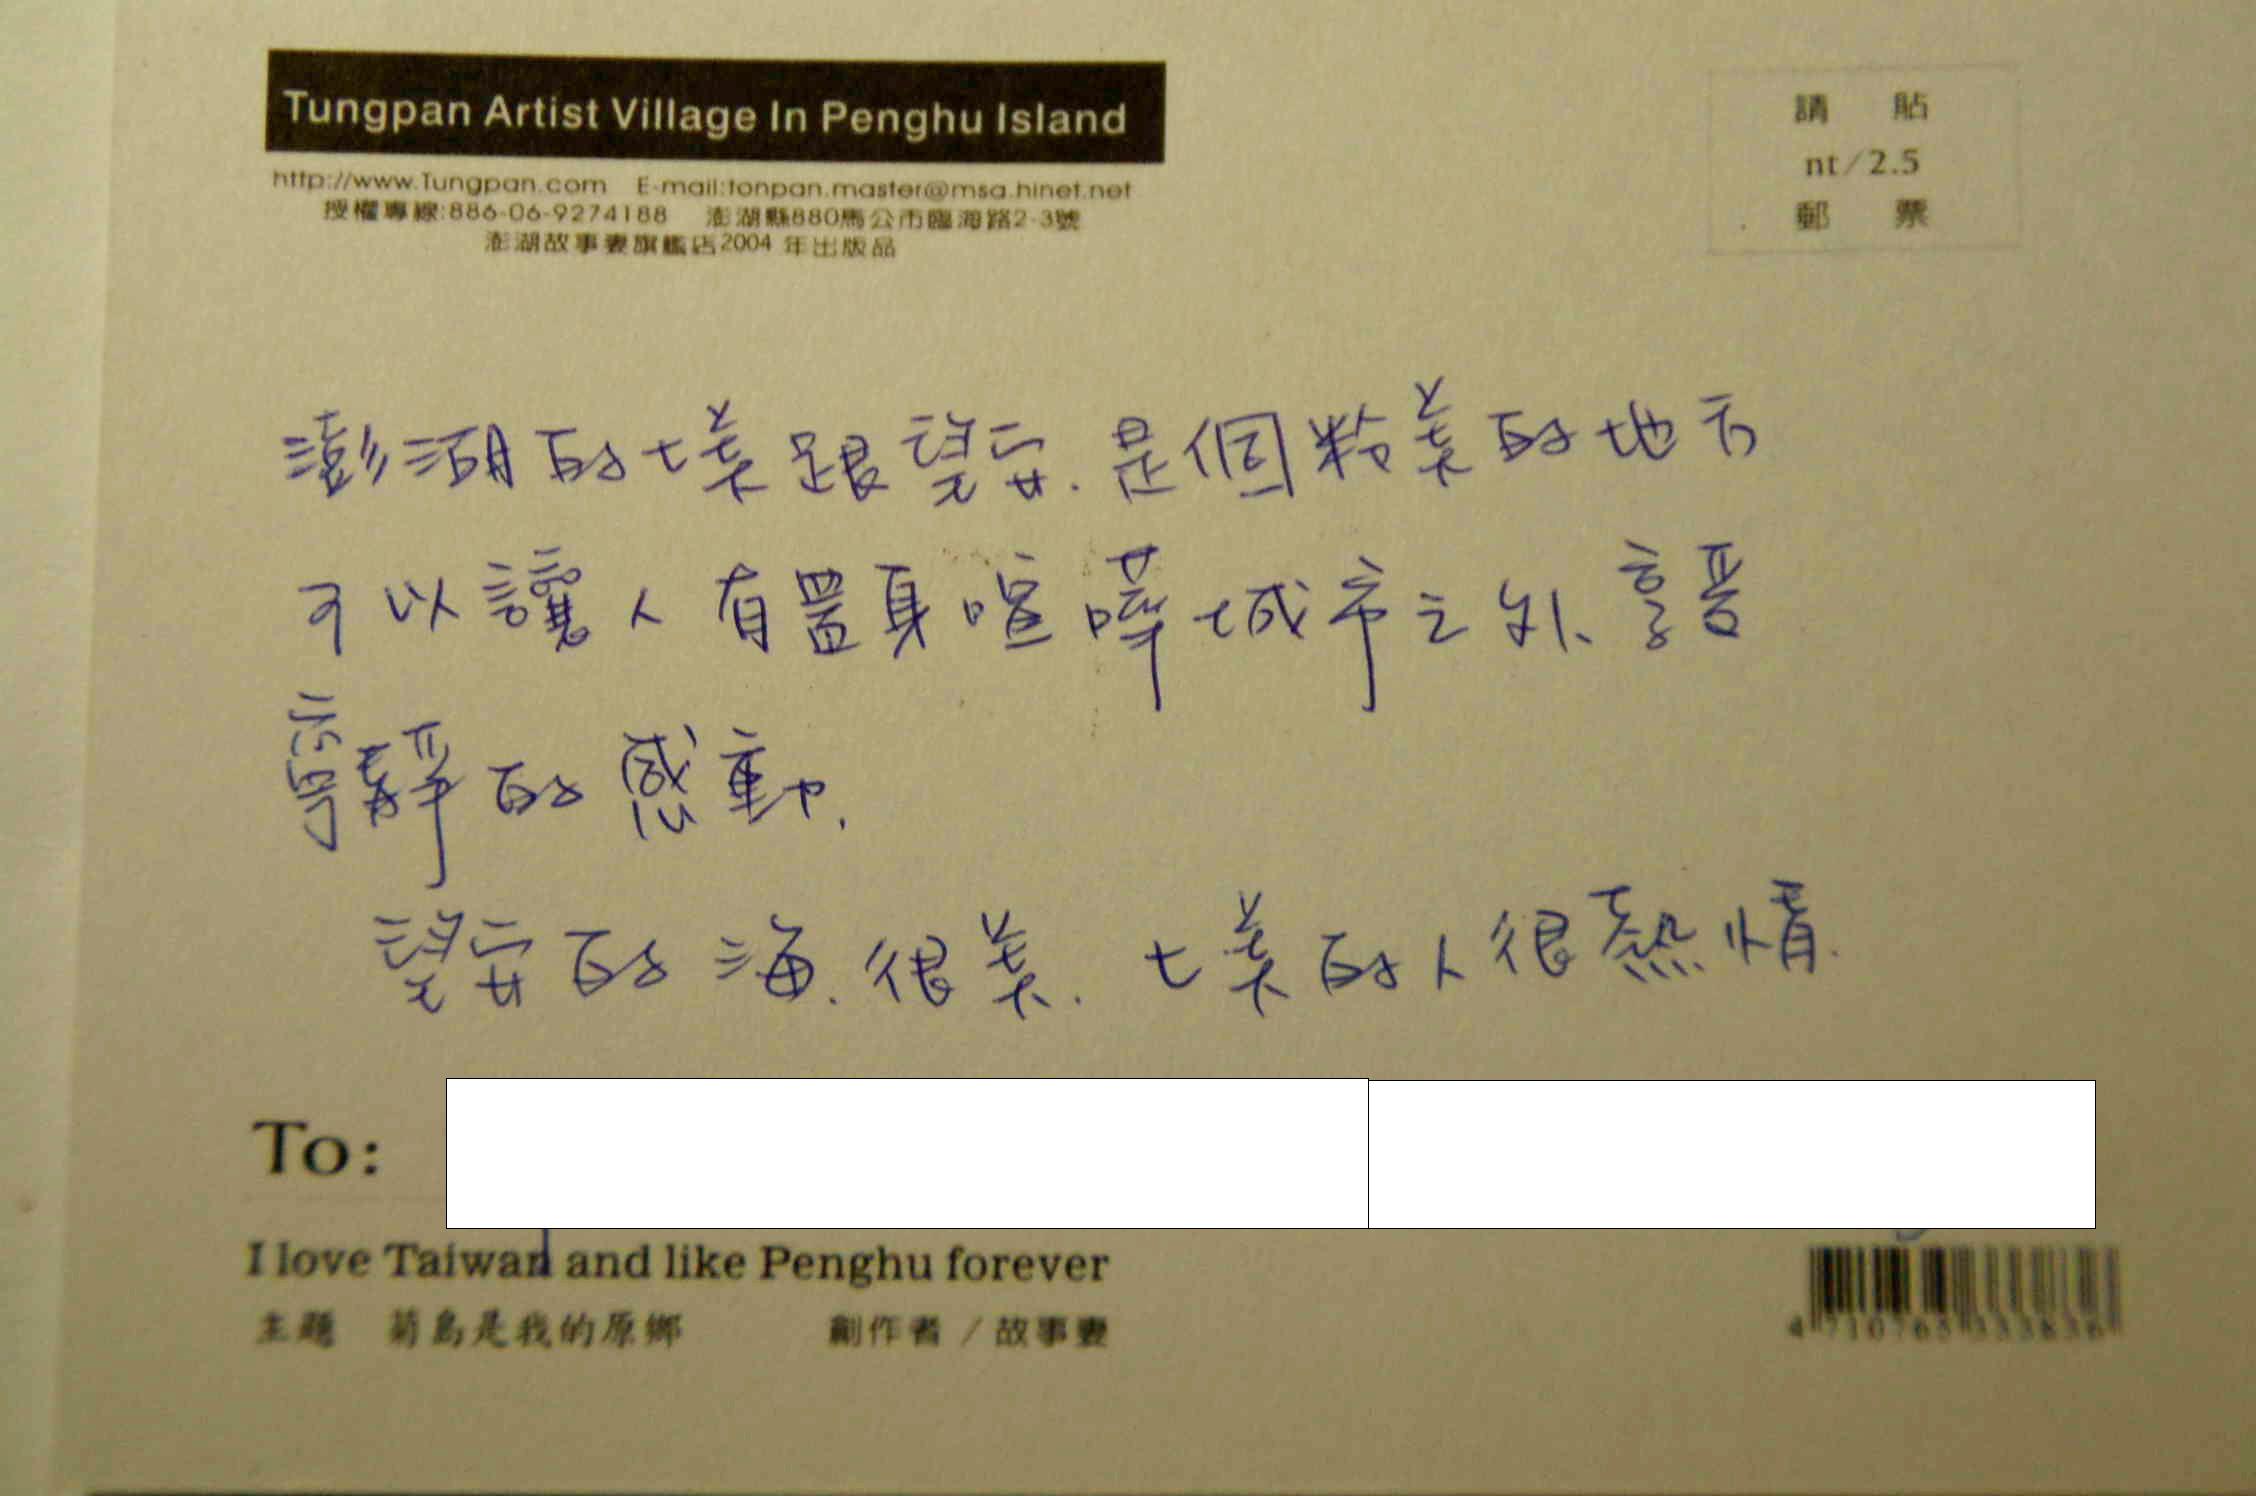 Tungpan Artist Village In Penghu Island
http://www.Tungpan.com E-mail:tonpan.master@msa.hinet.net
授權專線:886-06-9274188 澎湖縣880馬公市臨海路2-3號
澎湖故事妻旗艦店2004 年出版品
請 貼
nt/2.5
郵 票
澎湖的七美跟望安.是個粉美的地方
可以讓人有置身喧嘩城市之外、享受
寧靜的感動.
望安的海.很美.七美的人很熱情.
To:
I love Taiwan and like Penghu forever
主題 菊島是我的原鄉 創作者/故事妻
4710765333836